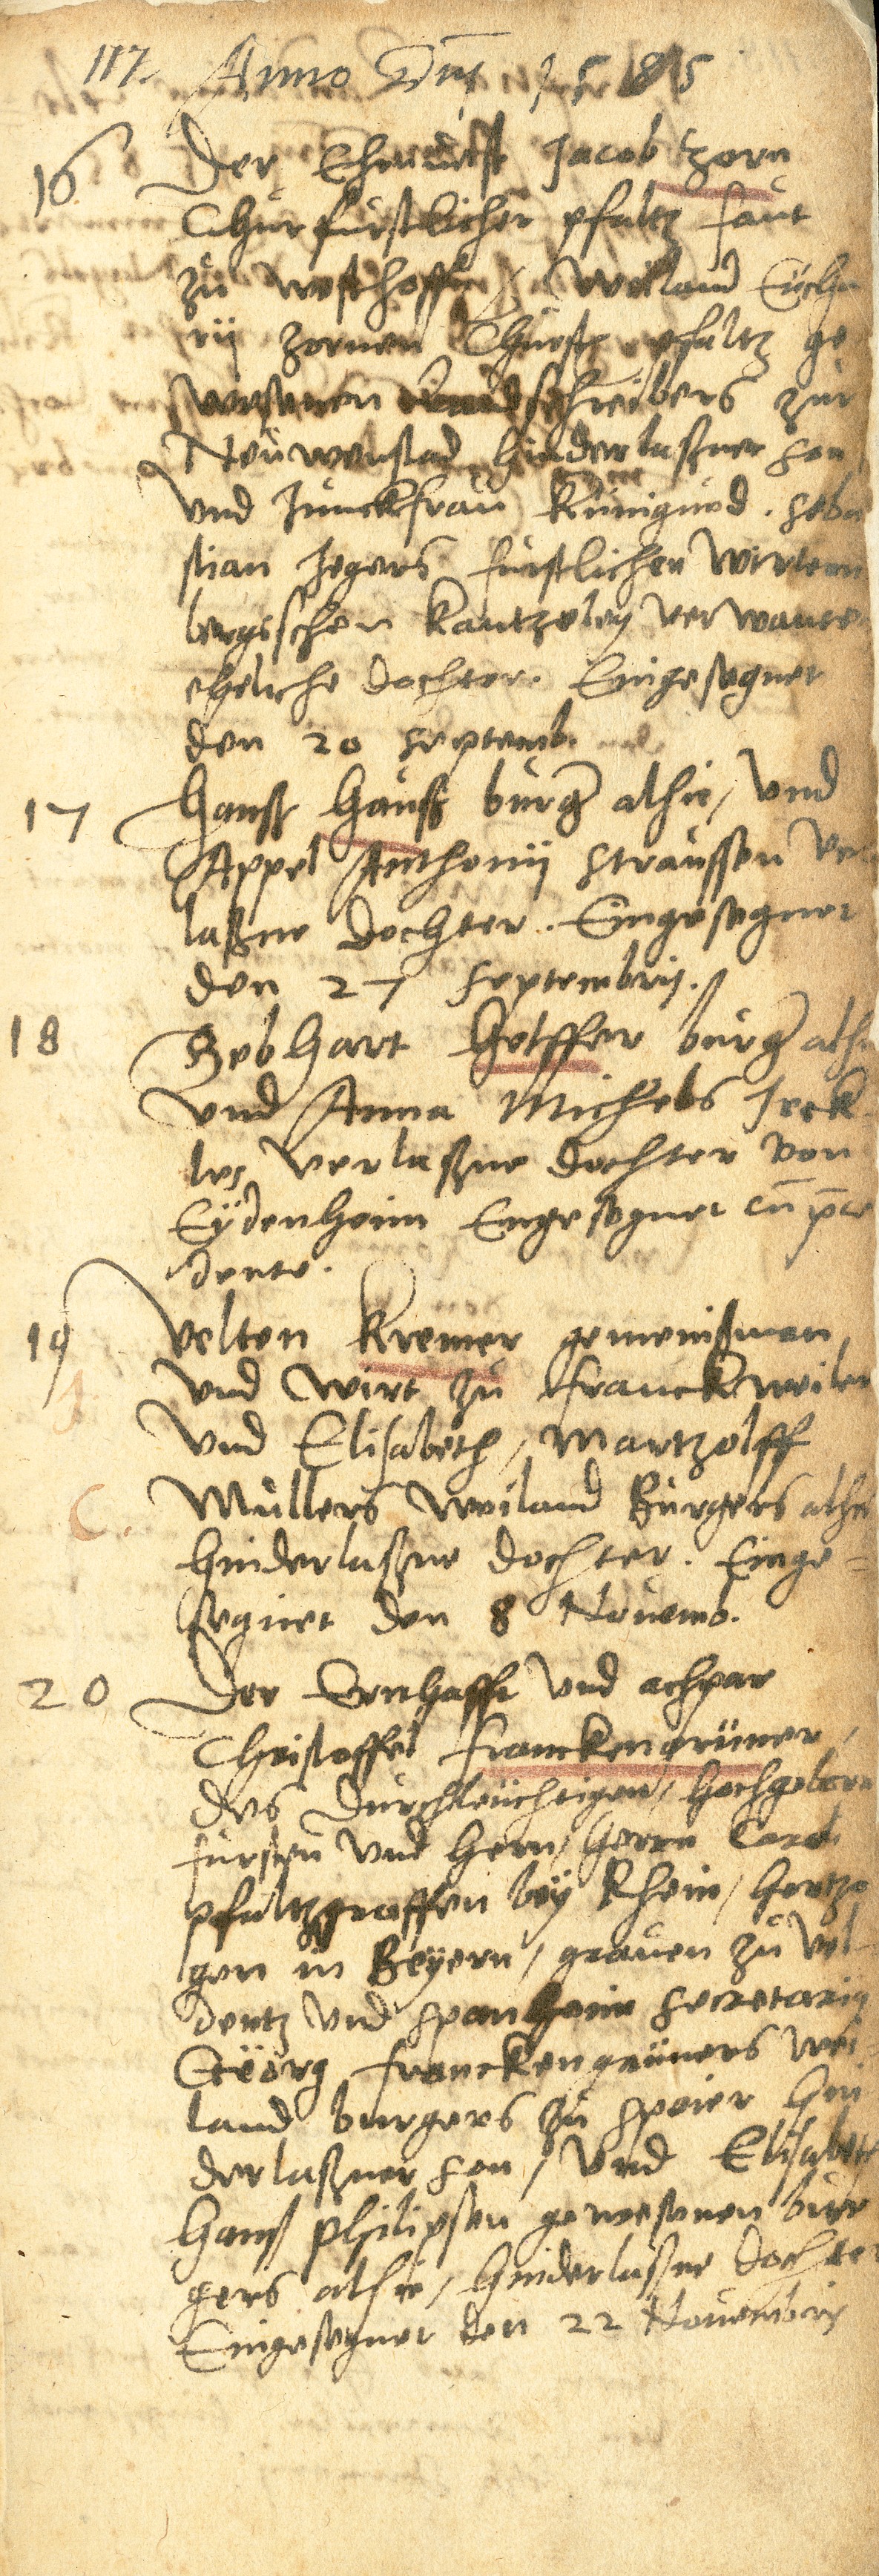 117. Anno Dni 1585
16 Der Ehrnuest Jacob Zorn
Churfürstlicher pfaltz faut
zu westhoffen, weiland Eucha
rij zornen Churf. pfaltz ge
wesenen Landschreibers zur
Neuwenstad hinderlaßner son
vnd Junckfrau Künigund. seba
stian Jegers fürstlichen Wirtem
bergischen kantzeley verwante
eheliche dochter. Eingesegnet
den 20 septemb.
17 Hanß Hauß burger alhie, vnd
Appel Anthonij straussen ver
laßne dochter. Eingesegnet
den 27 septembris.
18 Gebhart Helffer burger alhie
vnd Anna Michels Jeck
les verlaßne dochter von
Eÿdenheim Eingesegnet cū p̄ce
dente.
19 Velten Kremer gemeinßman
vnd wirt zu Franckweiler
vnd Elisabeth, Martzolff
C. Müllers weiland Burgers alhie
hinderlaßne dochter. Einge=
segnet den 8 Nouemb.
20 Der Ernhafft vnd achpar
Christoffel Franckengrüner,
des durchleuchtigen, hochgeborn
fürsten vnd hern, herrn Carol
pfaltzgraffen bey Rhein, hertzo
gen in Beyern, grauen zu Vel-
dentz vnd spanheim secretarij
Georg franckengrüners wei=
land burgers zu speier hin
derlaßner son, vnd Elisabeth
Hanß philipsen gewesenen bur
gers alhie, hinderlaßne dochter
Eingesegnet den 22 Nouembris